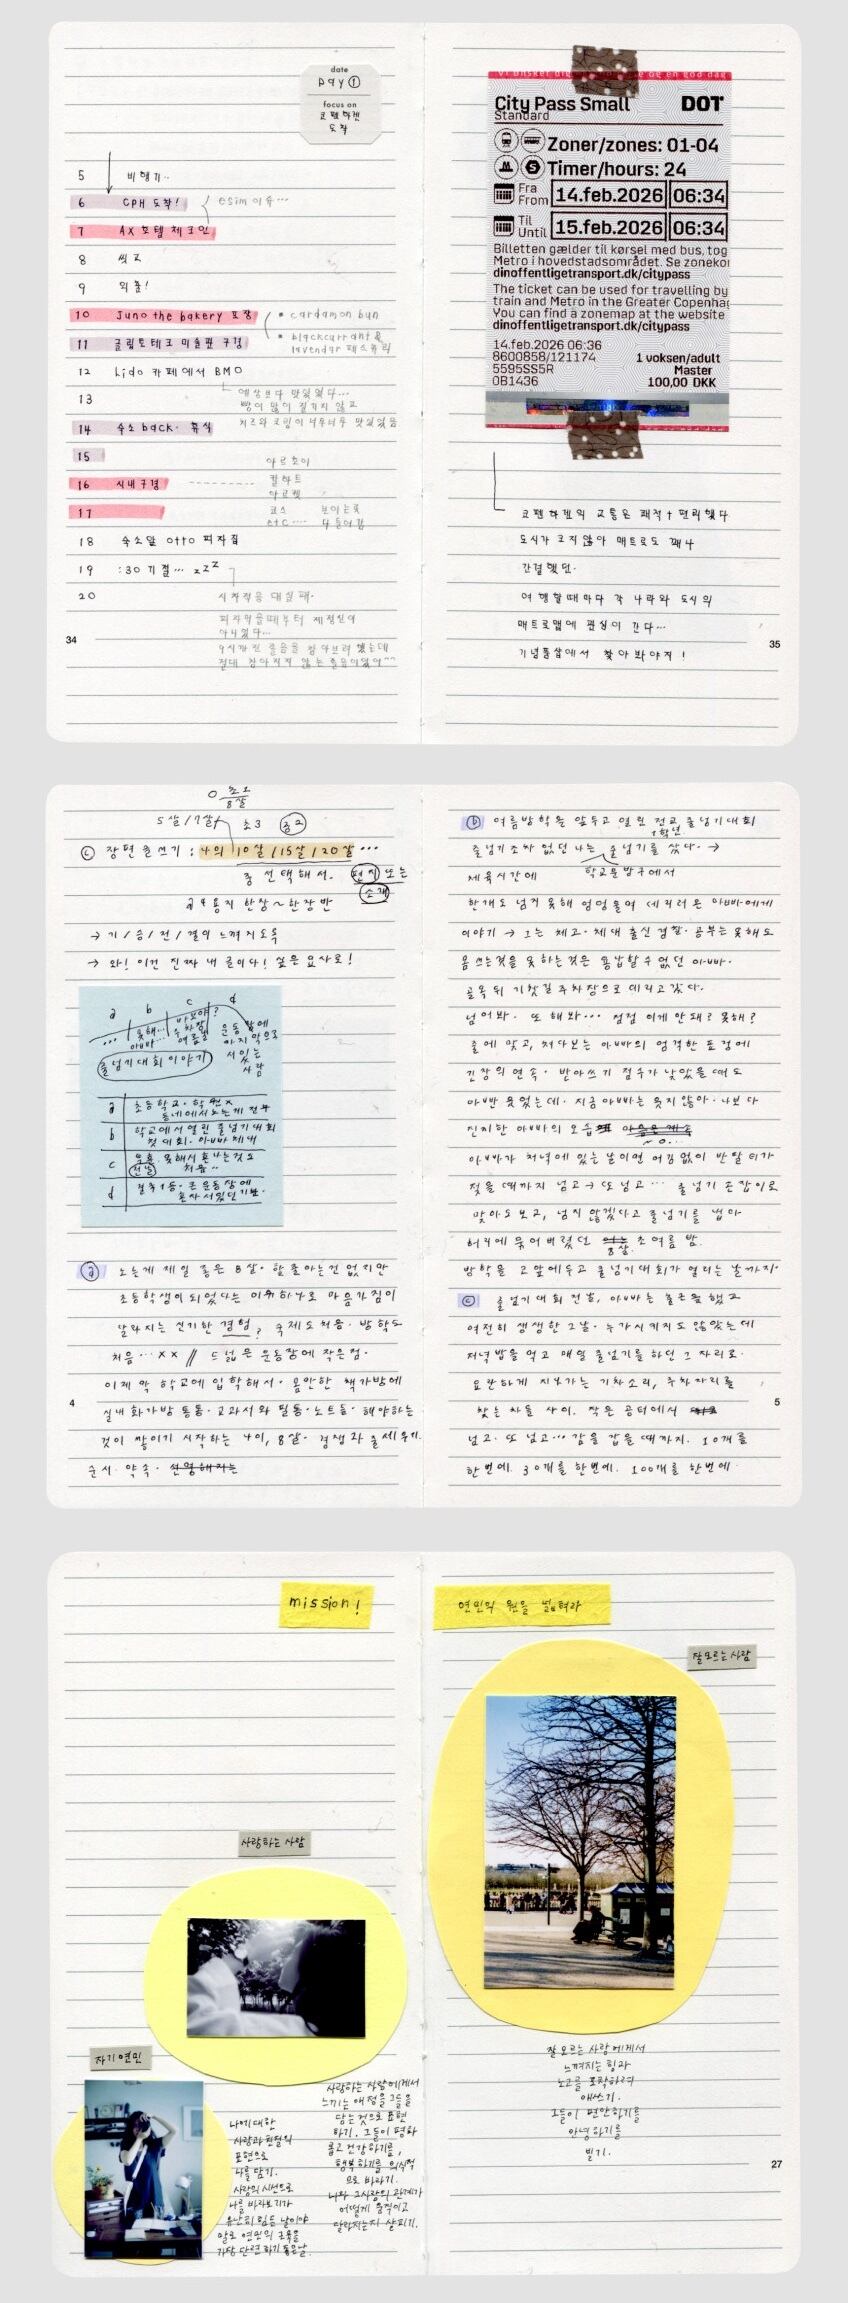 date
Day ①
focus on
코펜하겐
도착
5 비행기..
6 CPH 도착!
esim 이슈...
7 AX 호텔 체크인
8 씻고
9 외출!
10 Juno the bakery 포장
• cardamon bun
• blackcurrant &
lavendar 페스츄리
11 글립토테크 미술관 구경
12 Lido 카페에서 BMO
13
예상보다 맛있었다...
빵이 많이 질기지 않고
치즈와 크림이 너무너무 맛있었음
14 숙소 back. 휴식
15
16 시내구경
아르켓
17
etc....
18 숙소앞 otto 피자집
19 :30 기절... zzZ
20
시차적응 대실패.
피자먹을때부터 제정신이
아니었다...
9시까진 졸음을 참아보려 했는데
절대 참아지지 않는 졸음이었어^^
34
Vi ønsker dig en god dag
City Pass Small
DOT
Standard
Zoner/zones: 01-04
Timer/hours: 24
Fra
From
14.feb.2026 06:34
Til
Until
15.feb.2026 06:34
Billetten gælder til kørsel med bus, tog
Metro i hovedstadsområdet. Se zonekor
dinoffentligetransport.dk/citypass
The ticket can be used for travelling by
train and Metro in the Greater Copenhag
You can find a zonemap at the website
dinoffentligetransport.dk/citypass
14.feb.2026 06:36
8600858/121174
5595SS5R
0B1436
1 voksen/adult
Master
100,00 DKK
코펜하겐의 교통은 쾌적+편리했다
도시가 크지않아 메트로도 꽤나
간결했던.
여행할때마다 각 나라와 도시의
메트로맵에 관심이 간다...
기념품샵에서 찾아봐야지!
35
초1
8살
5살/7살
초3 중2
ⓒ 장면 글쓰기 : 나의 10살/15살/20살...
중 선택해서. 편지 또는
소개
a4용지 한장~한장반
→ 기/승/전/결이 느껴지도록
→ 와! 이건 진짜 내 글이다! 싶은 요사로!
a b c d
줄넘기대회 이야기
운동장에
마지막으로
서있는
사람
a 초등학교. 학원x
동네에서 노는게 전부
b 학교에서 열린 줄넘기대회
첫 대회. 아빠 체대
c
전날
처음..
d 결국 1등. 큰 운동장에
혼자 서있던 기분.
ⓐ 노는게 제일 좋은 8살. 할 줄 아는건 없지만
초등학생이 되었다는 이유 하나로 마음가짐이
달라지는 신기한 경험. 숙제도 처음. 방학도
처음...xx // 드넓은 운동장에 작은점.
이제 막 학교에 입학해서. 몸만한 책가방에
실내화가방 통통. 교과서와 필통. 노트들. 해야하는
것이 쌓이기 시작하는 나이, 8살. 경쟁과 줄세우기.
순서. 약속.
4
ⓑ 여름방학을 앞두고 열린 전교 줄넘기대회
1학년
줄넘기조차 없던 나는 줄넘기를 샀다. →
체육시간에 학교문방구에서
한개도 넘지 못해 엉엉울며 데리러온 아빠에게
이야기 → 그는 체고. 체대 출신 경찰. 공부는 못해도
몸 쓰는것을 못하는것은 용납할수 없던 아빠.
골목 뒤 기찻길 주차장으로 데리고갔다.
넘어봐. 또 해봐... 점점 이게 안돼? 못해?
줄에 맞고, 쳐다보는 아빠의 엄격한 표정에
긴장의 연속. 받아쓰기 점수가 낮았을 때도
아빤 웃었는데. 지금 아빠는 웃지 않아. 나보다
진지한 아빠의 모습
아빠가 저녁에 있는 날이면 어김없이 반팔티가
젖을 때까지 넘고→또 넘고... 줄넘기 손잡이로
맞아도 보고, 넘지 않겠다고 줄넘기를 뱀마
허리에 묶어버렸던 8살. 초여름 밤.
방학을 코앞에두고 줄넘기대회가 열리는 날까지.
ⓒ 줄넘기대회 전날, 아빠는 출근을 했고
여전히 생생한 그날. 누가시키지도 않았는데
저녁밥을 먹고 매일 줄넘기를 하던 그 자리로.
요란하게 지나가는 기차소리, 주차자리를
찾는 차들 사이. 작은 공터에서
넘고. 또 넘고... 감을 잡을 때까지. 10개를
한번에. 30개를 한번에. 100개를 한번에.
5
mission!
연민의 원을 넓혀라
잘모르는 사람
사랑하는 사람
자기연민
나에대한
사랑과 친절의
표현으로
나를 담기.
사랑의 시선으로
나를 바라보기가
유난히 힘든 날이야
말로 연민의 근육을
가장 단련하기 좋은날.
사랑하는 사람에게서
느끼는 애정을 그들을
담는 것으로 표현
하기. 그들이 평화
롭고 건강하기를,
행복하기를 의식적
으로 바라기.
나와 그사람의 관계가
어떻게 움직이고
달라지는지 살피기.
잘 모르는 사람에게서
느껴지는 힘과
노고를 포착하려
애쓰기.
그들이 편안하기를
안녕하기를
빌기.
27